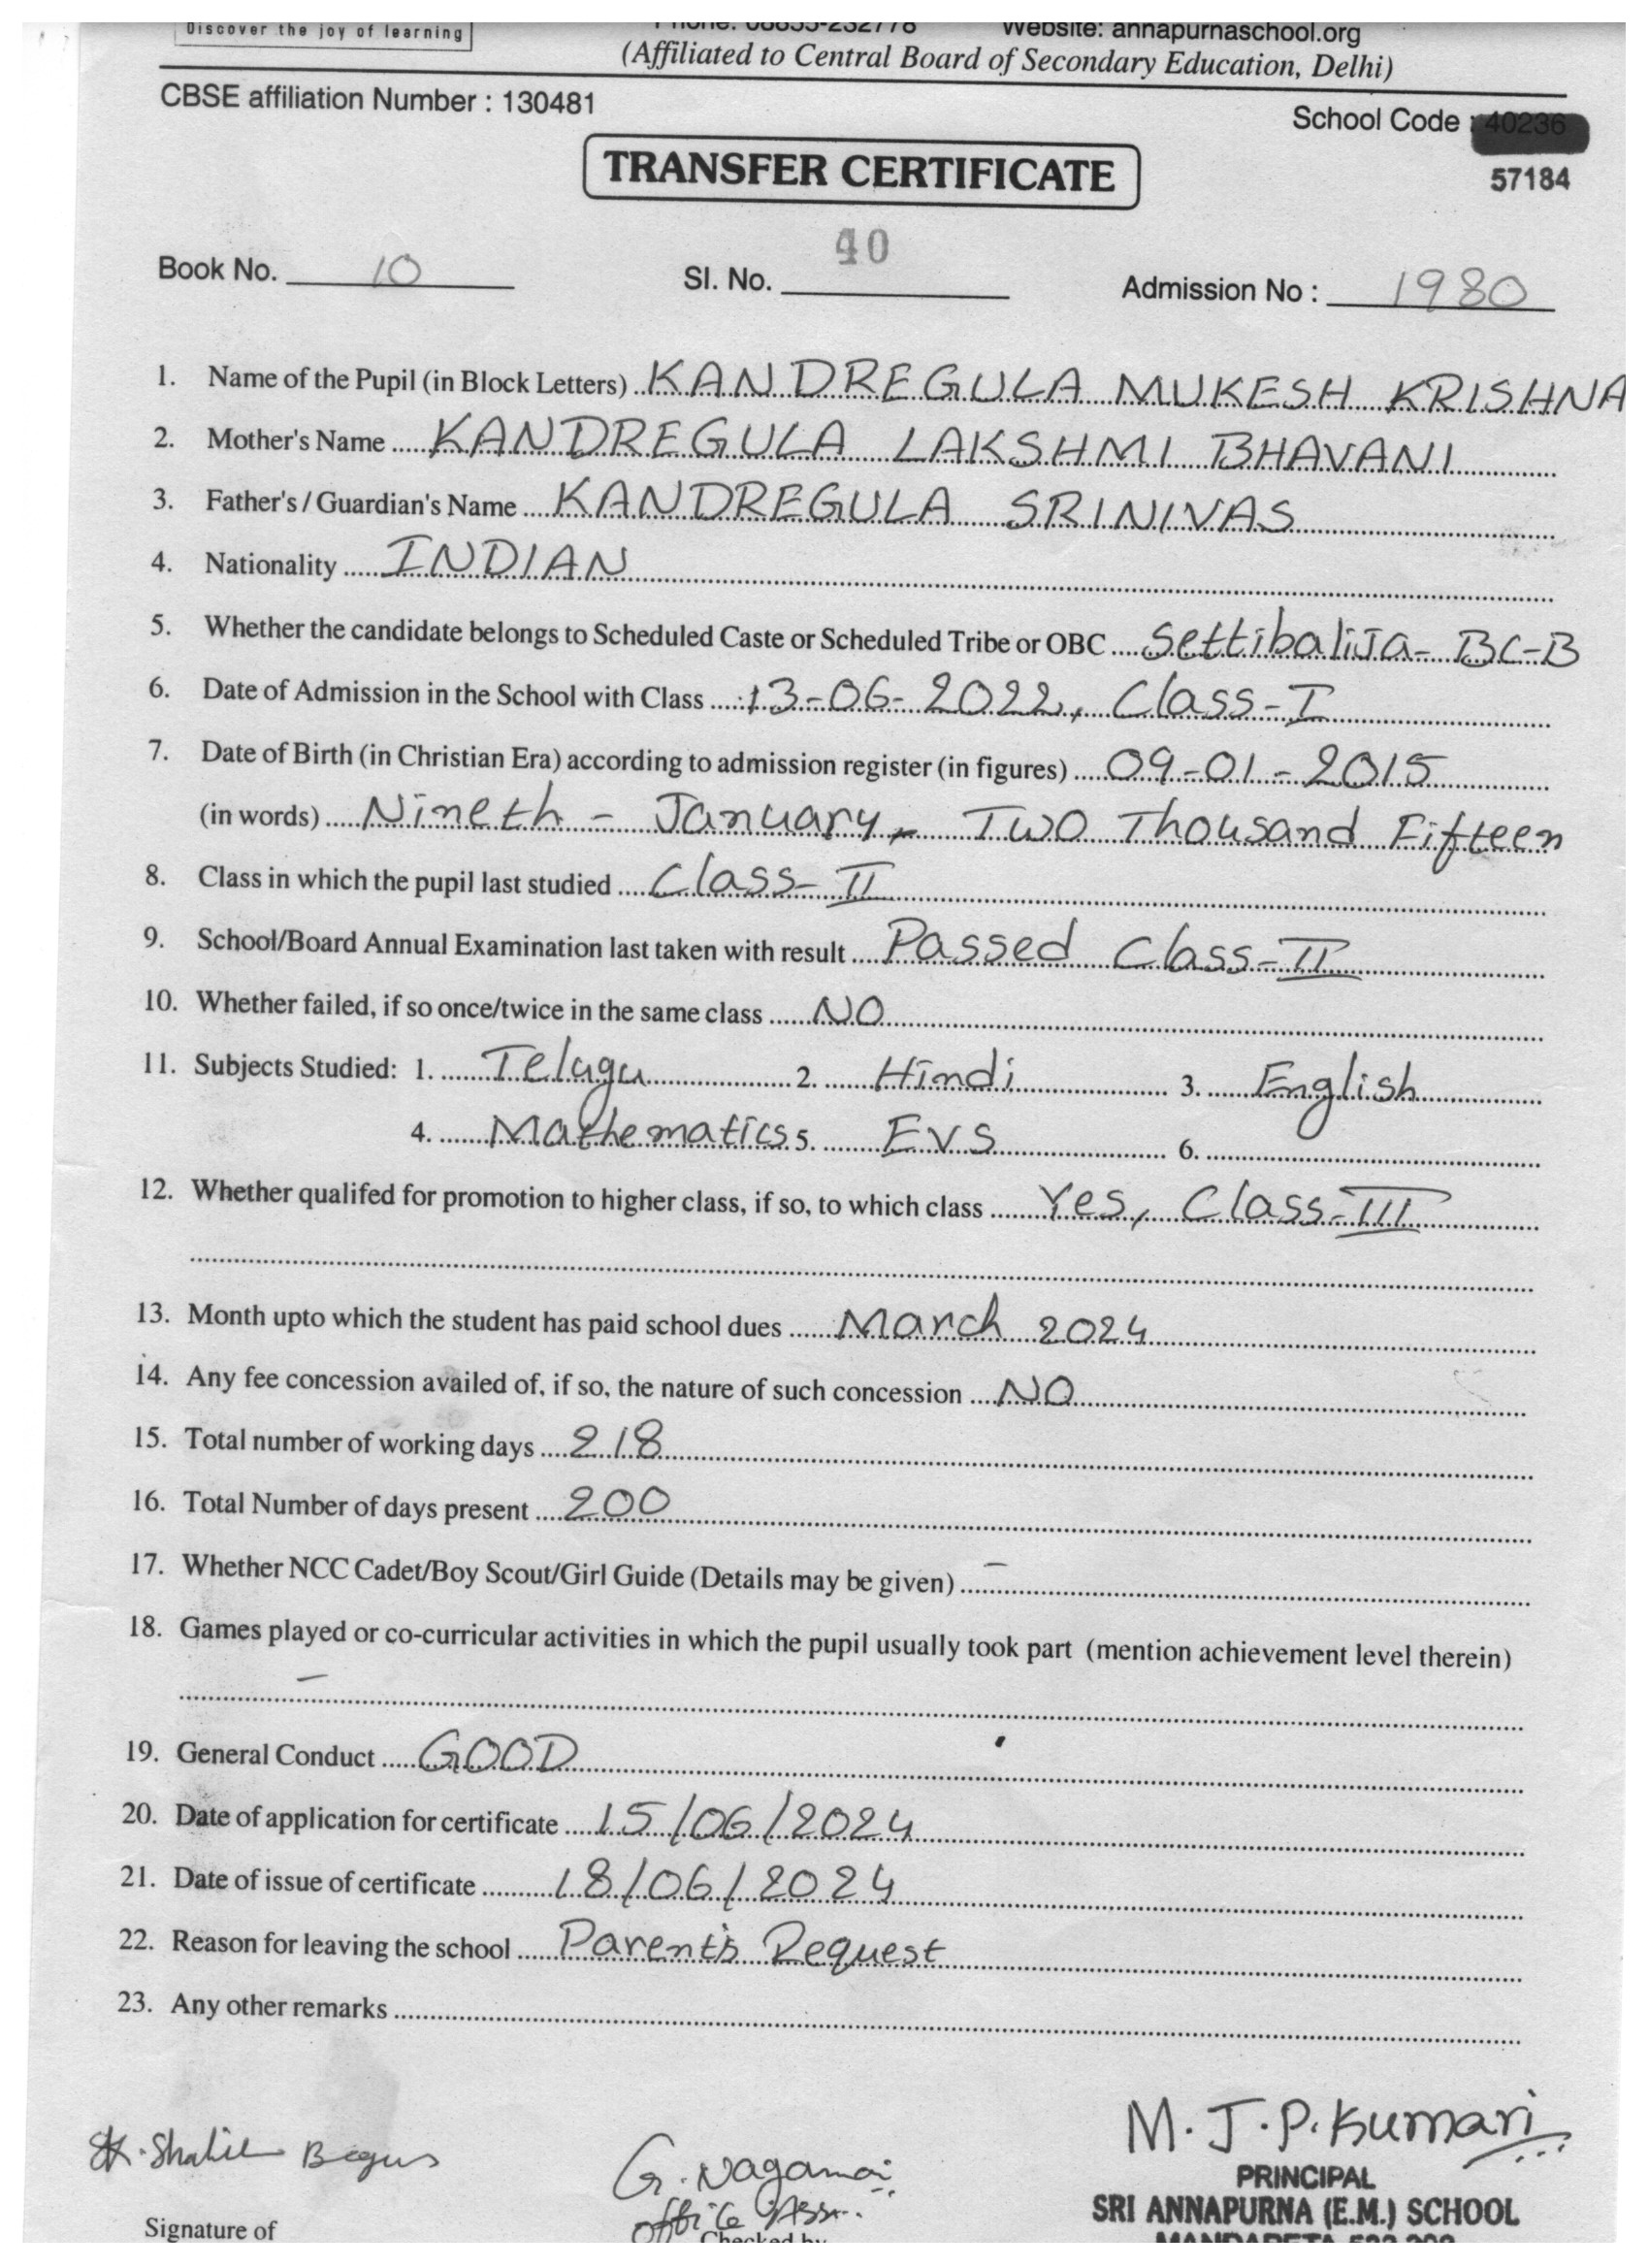 Discover the joy of learning
Phone: 08855-232778 Website: annapurnaschool.org
(Affiliated to Central Board of Secondary Education, Delhi)
CBSE affiliation Number : 130481
School Code : 40236
57184
TRANSFER CERTIFICATE
Book No. 10 Sl. No. 40 Admission No : 1980
1. Name of the Pupil (in Block Letters) KANDREGULA MUKESH KRISHNA
2. Mother's Name KANDREGULA LAKSHMI BHAVANI
3. Father's / Guardian's Name KANDREGULA SRINIVAS
4. Nationality INDIAN
5. Whether the candidate belongs to Scheduled Caste or Scheduled Tribe or OBC Settibalija - BC-B
6. Date of Admission in the School with Class 13-06-2022, Class-I
7. Date of Birth (in Christian Era) according to admission register (in figures) 09-01-2015
(in words) Nineth - January, Two Thousand Fifteen
8. Class in which the pupil last studied Class-II
9. School/Board Annual Examination last taken with result Passed Class-II
10. Whether failed, if so once/twice in the same class NO
11. Subjects Studied: 1. Telugu 2. Hindi 3. English
4. Mathematics 5. EVS 6.
12. Whether qualifed for promotion to higher class, if so, to which class Yes, Class-III
13. Month upto which the student has paid school dues March 2024
14. Any fee concession availed of, if so, the nature of such concession NO
15. Total number of working days 218
16. Total Number of days present 200
17. Whether NCC Cadet/Boy Scout/Girl Guide (Details may be given) -
18. Games played or co-curricular activities in which the pupil usually took part (mention achievement level therein)
-
19. General Conduct GOOD
20. Date of application for certificate 15/06/2024
21. Date of issue of certificate 18/06/2024
22. Reason for leaving the school Parent's Request
23. Any other remarks
M. J. P. Kumari
G. Nagamai
Office Asst.
PRINCIPAL
SRI ANNAPURNA (E.M.) SCHOOL
Signature of
Checked by